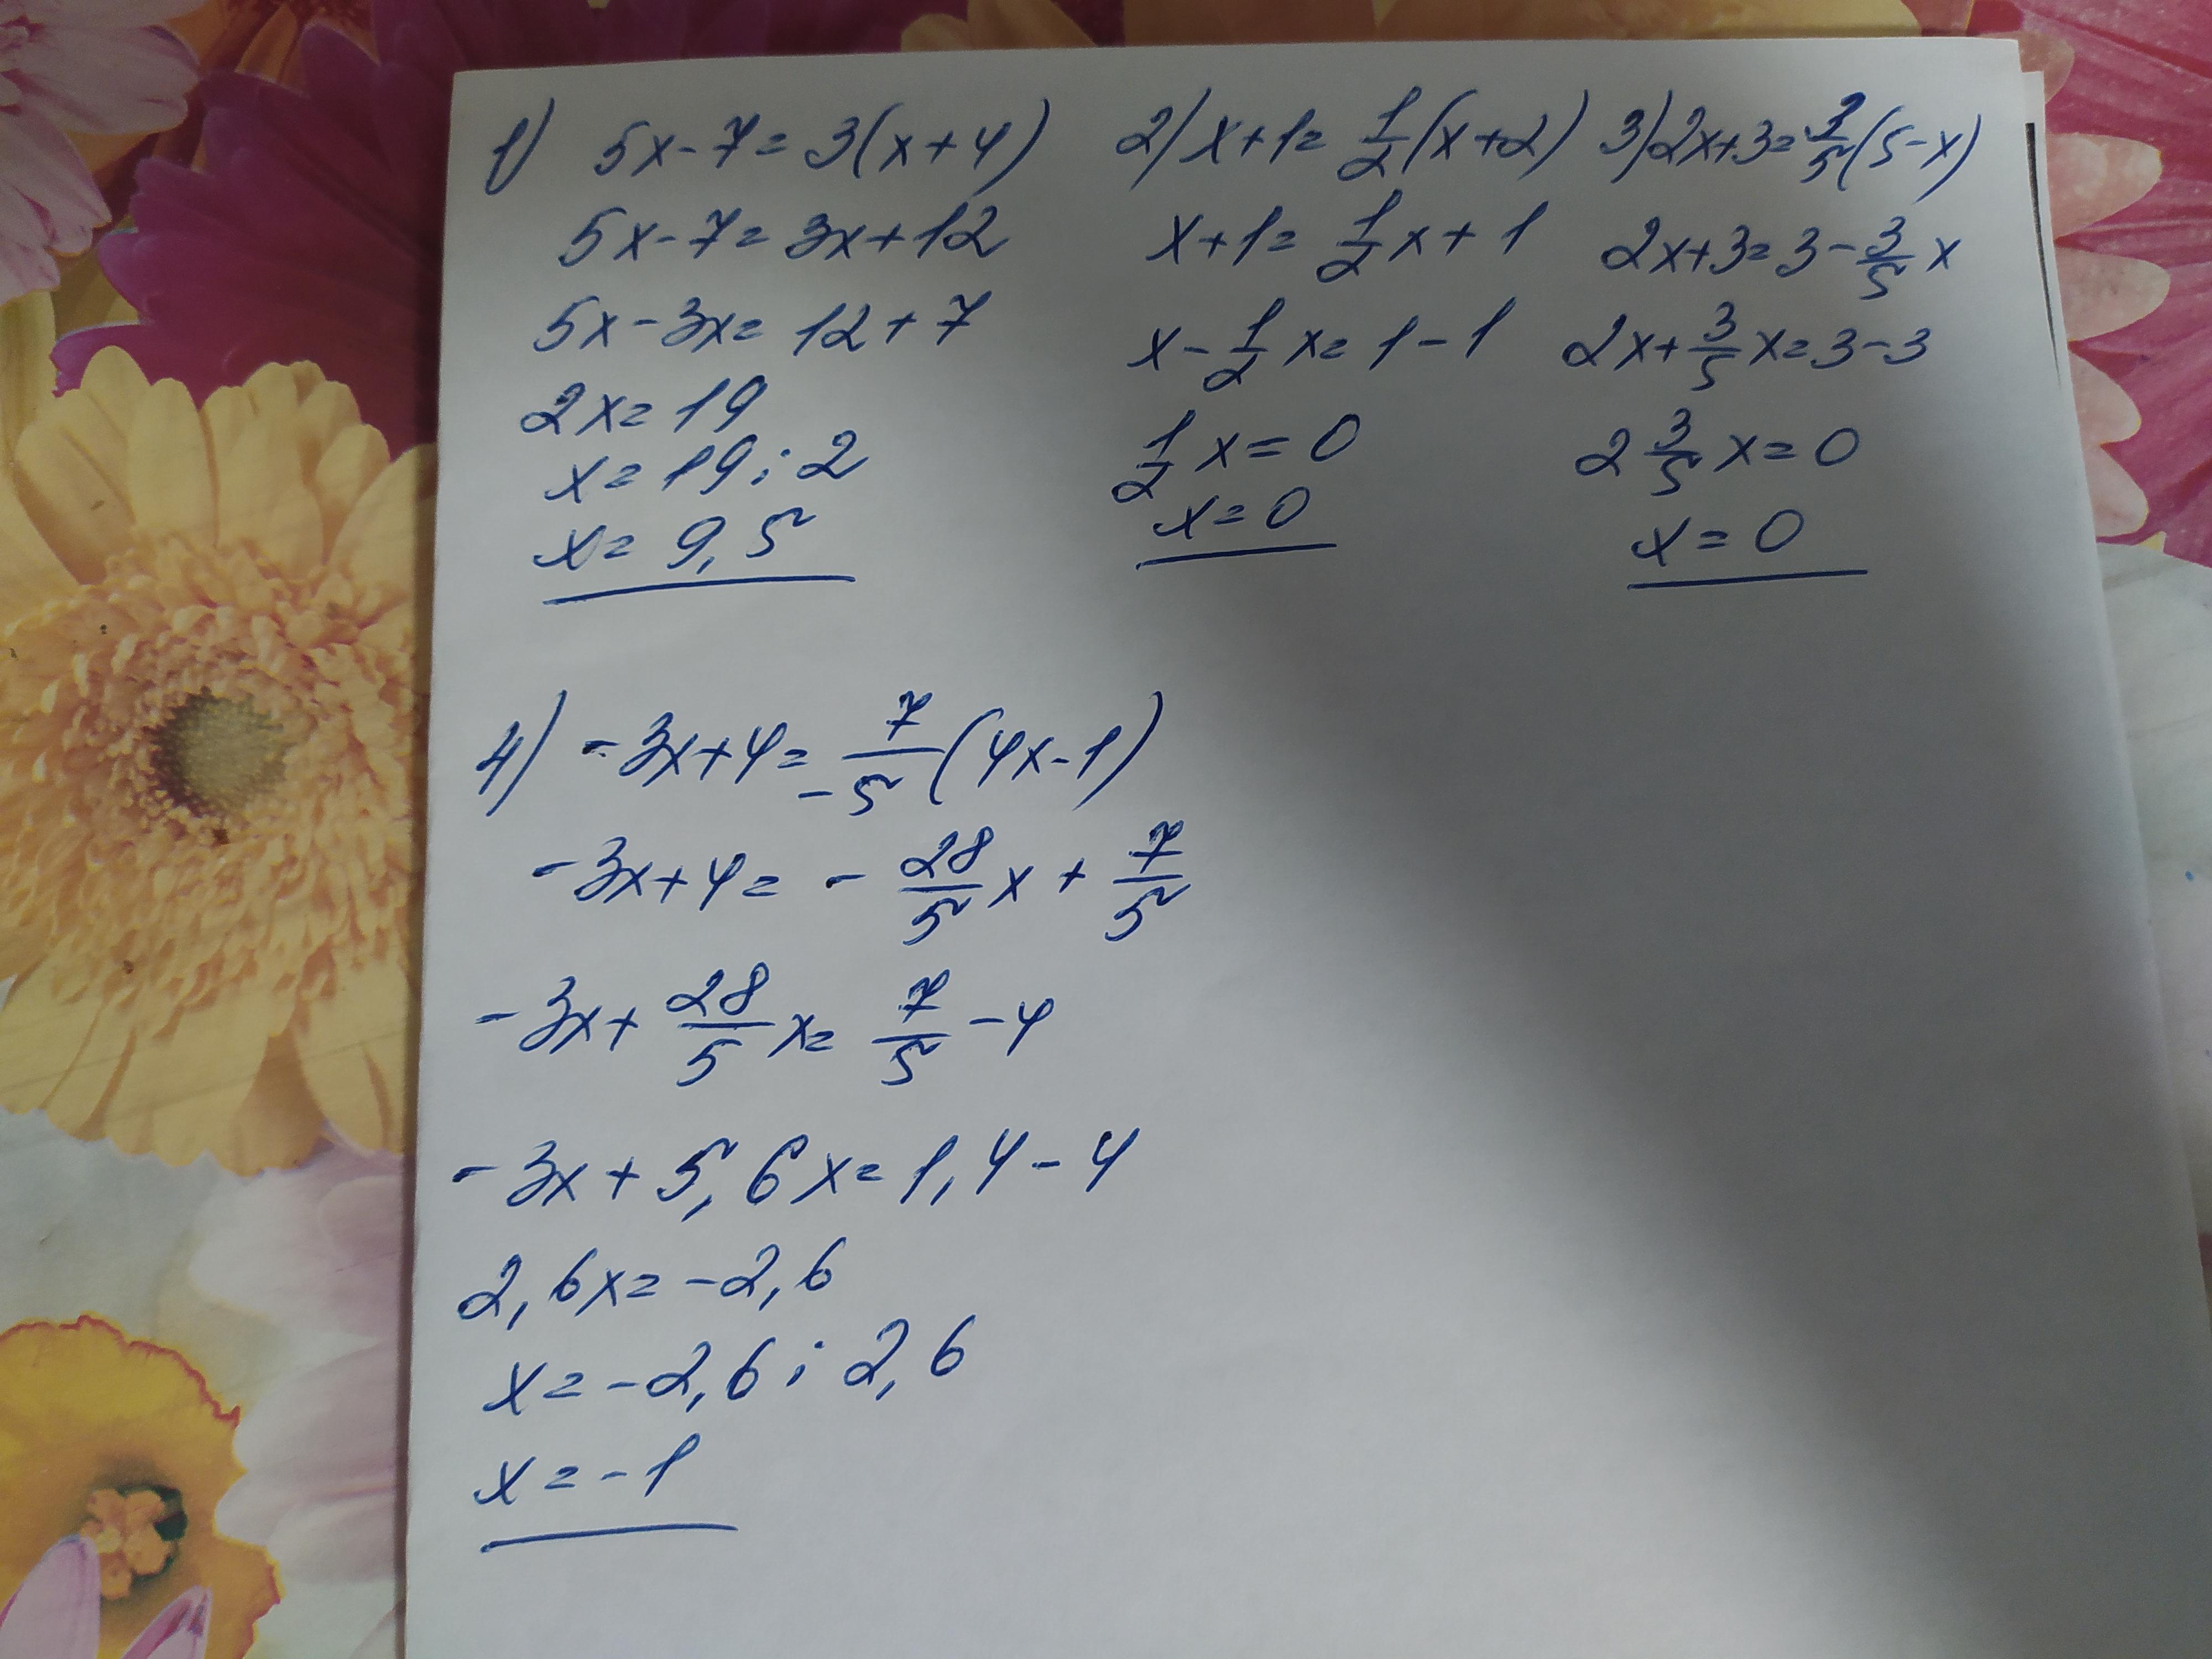 1) 5x-7=3(x+4)
5x-7=3x+12
5x-3x=12+7
2x=19
x=19:2
x=9,5
2) x+1=1/2(x+2)
x+1=1/2x+1
x-1/2x=1-1
1/2x=0
x=0
3) 2x+3=3/5(5-x)
2x+3=3-3/5x
2x+3/5x=3-3
2 3/5x=0
x=0
4) -3x+4=7/-5(4x-1)
-3x+4=-28/5x+7/5
-3x+28/5x=7/5-4
-3x+5,6x=1,4-4
2,6x=-2,6
x=-2,6:2,6
x=-1